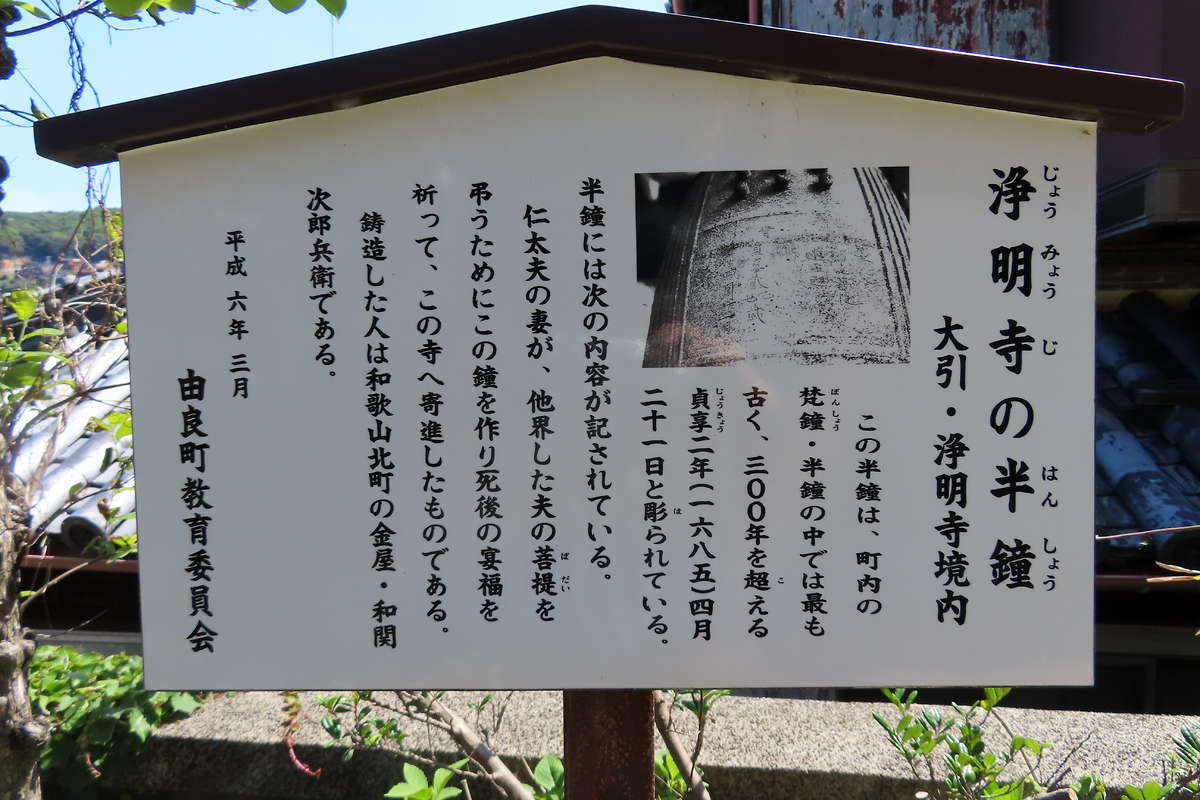 浄明寺の半鐘
じょうみょうじ はんしょう
大引・浄明寺境内
この半鐘は、町内の
梵鐘・半鐘の中では最も
ぼんしょう
古く、三00年を超える
こ
貞享二年(一六八五)四月
じょうきょう
二十一日と彫られている。
は
半鐘には次の内容が記されている。
仁太夫の妻が、他界した夫の菩提を
ぼだい
弔うためにこの鐘を作り死後の宴福を
祈って、この寺へ寄進したものである。
鋳造した人は和歌山北町の金屋・和関
次郎兵衛である。
平成 六年 三月
由良町教育委員会